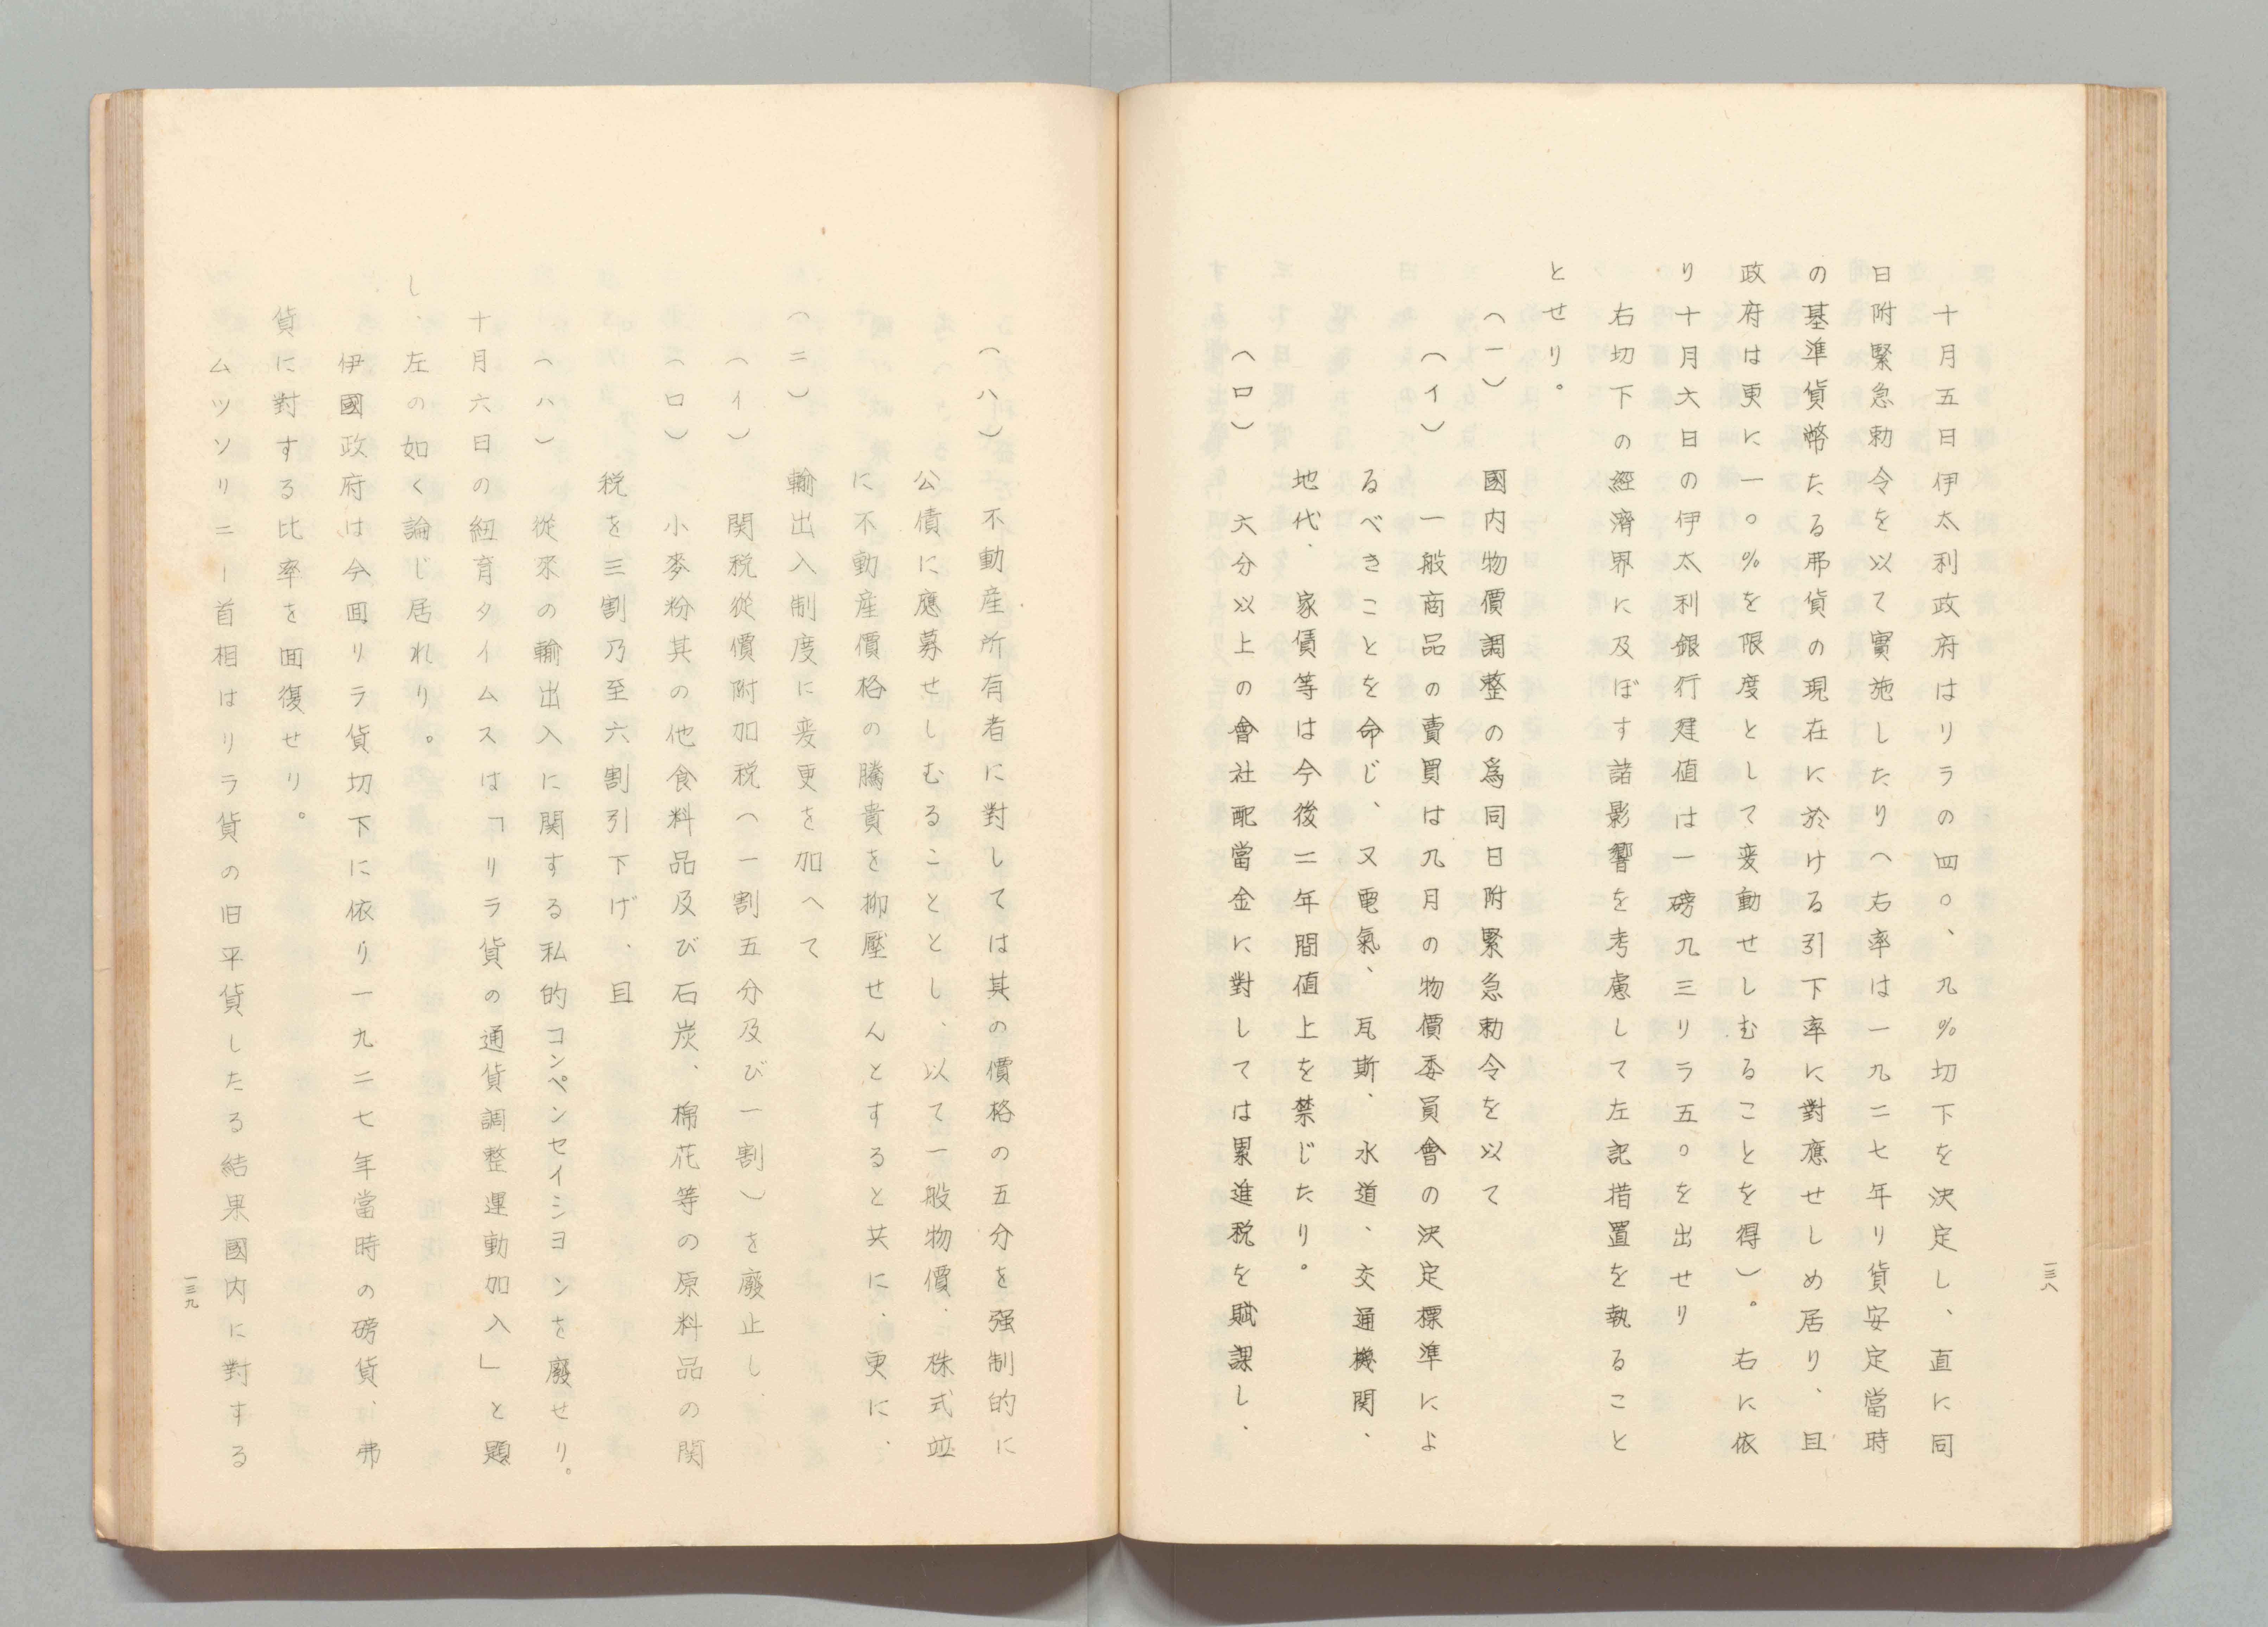 十月五日伊太利政府はリラの四〇、九％切下を決定し、直に同
日附緊急勅令を以て實施したり（右率は一九二七年リ貨安定當時
の基準貨幣たる弗貨の現在に於ける引下率に對應せしめ居り、且
政府は更に一〇％を限度として変動せしむることを得）。右に依
り十月六日の伊太利銀行建値は一磅九三リラ五〇を出せり
右切下の經濟界に及ぼす諸影響を考慮して左記措置を執ること
とせり。
（一）　國内物價調整の爲同日附緊急勅令を以て
（イ）　一般商品の賣買は九月の物價委員會の決定標準によ
るべきことを命じ、又電氣、瓦斯、水道、交通機関、
地代、家賃等は今後二年間値上を禁じたり。
（ロ）　六分以上の會社配當金に對しては累進税を賦課し、
一三八
（ハ）　不動産所有者に對しては其の價格の五分を强制的に
公債に應募せしむることとし、以て一般物價、株式竝
に不動産價格の騰貴を抑壓せんとすると共に、更に、
（二）　輸出入制度に変更を加へて
（イ）　関税從價附加税（一割五分及び一割）を廢止し、
（ロ）　小麥粉其の他食料品及び石炭、棉花等の原料品の関
税を三割乃至六割引下げ、且
（ハ）　從來の輸出入に関する私的コンペンセイシヨンを廢せり。
十月六日の紐育タイムスは「リラ貨の通貨調整運動加入」と題
し、左の如く論じ居れり。
伊國政府は今囬リラ貨切下に依り一九二七年當時の磅貨、弗
貨に對する比率を囬復せり。
ムツソリニー首相はリラ貨の旧平貨したる結果國内に對する
一三九